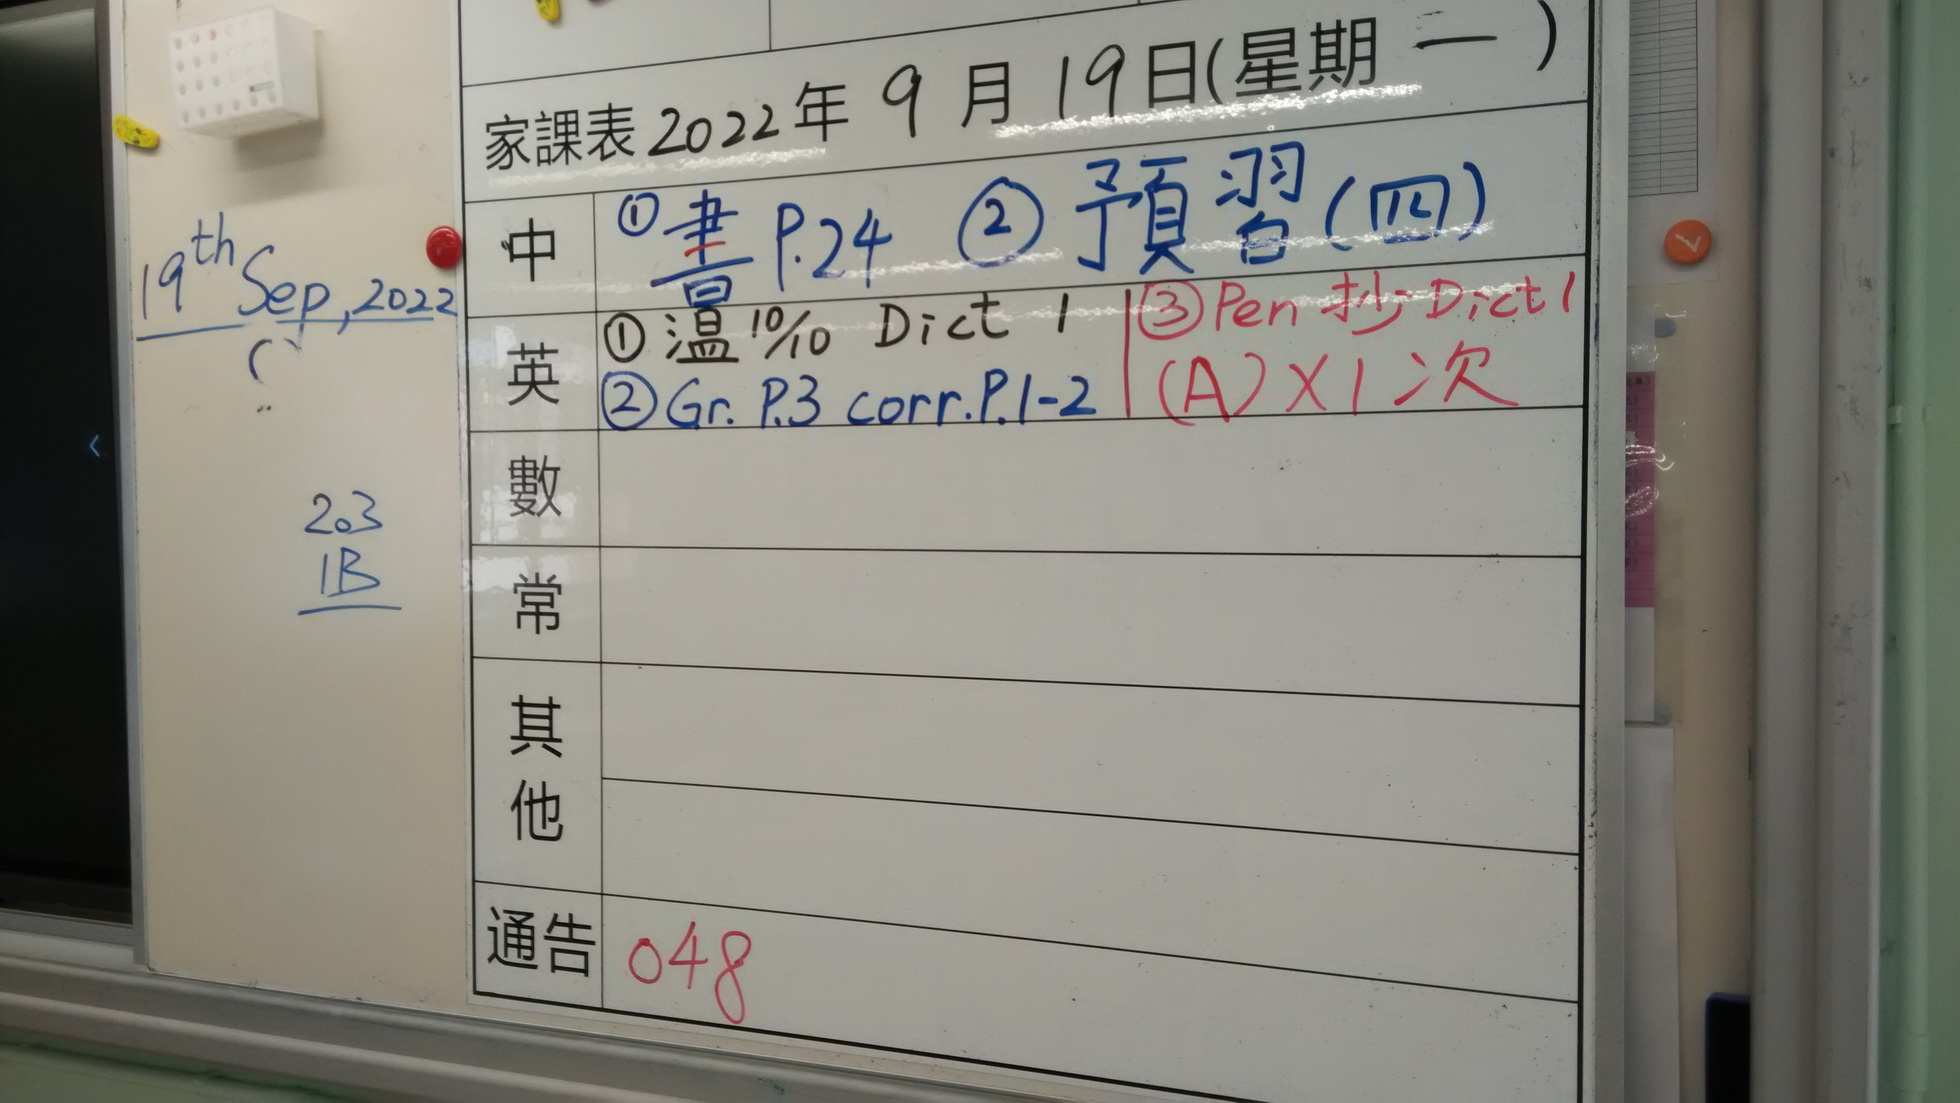 家課表 2022年 9 月 19日(星期 一 )
中 ① 書 P.24 ② 預習(四)
英 ① 溫 10/10 Dict 1
② Gr. P.3 corr.P.1-2
③ Pen 抄 Dict 1
(A) X 1 次
數
常
其他
通告 048
19th Sep, 2022
203
1B